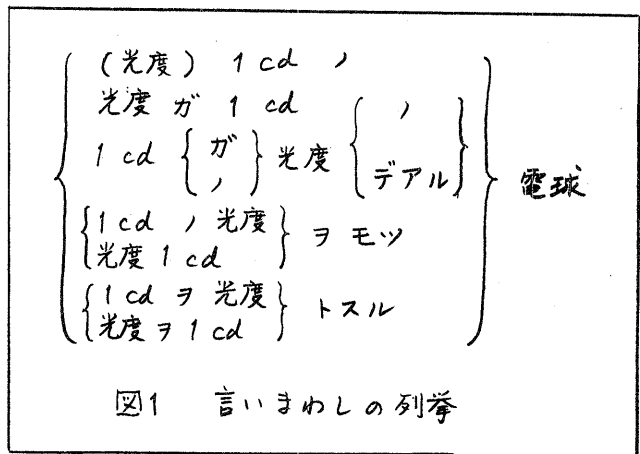 (光度) 1 cd ノ
光度 ガ 1 cd
1 cd { ガ ノ } 光度 { ノ デアル }
電球
{ 1 cd ノ 光度
光度 1 cd } ヲ モツ
{ 1 cd ヲ 光度
光度 ヲ 1 cd } トスル
図1 言いまわしの列挙